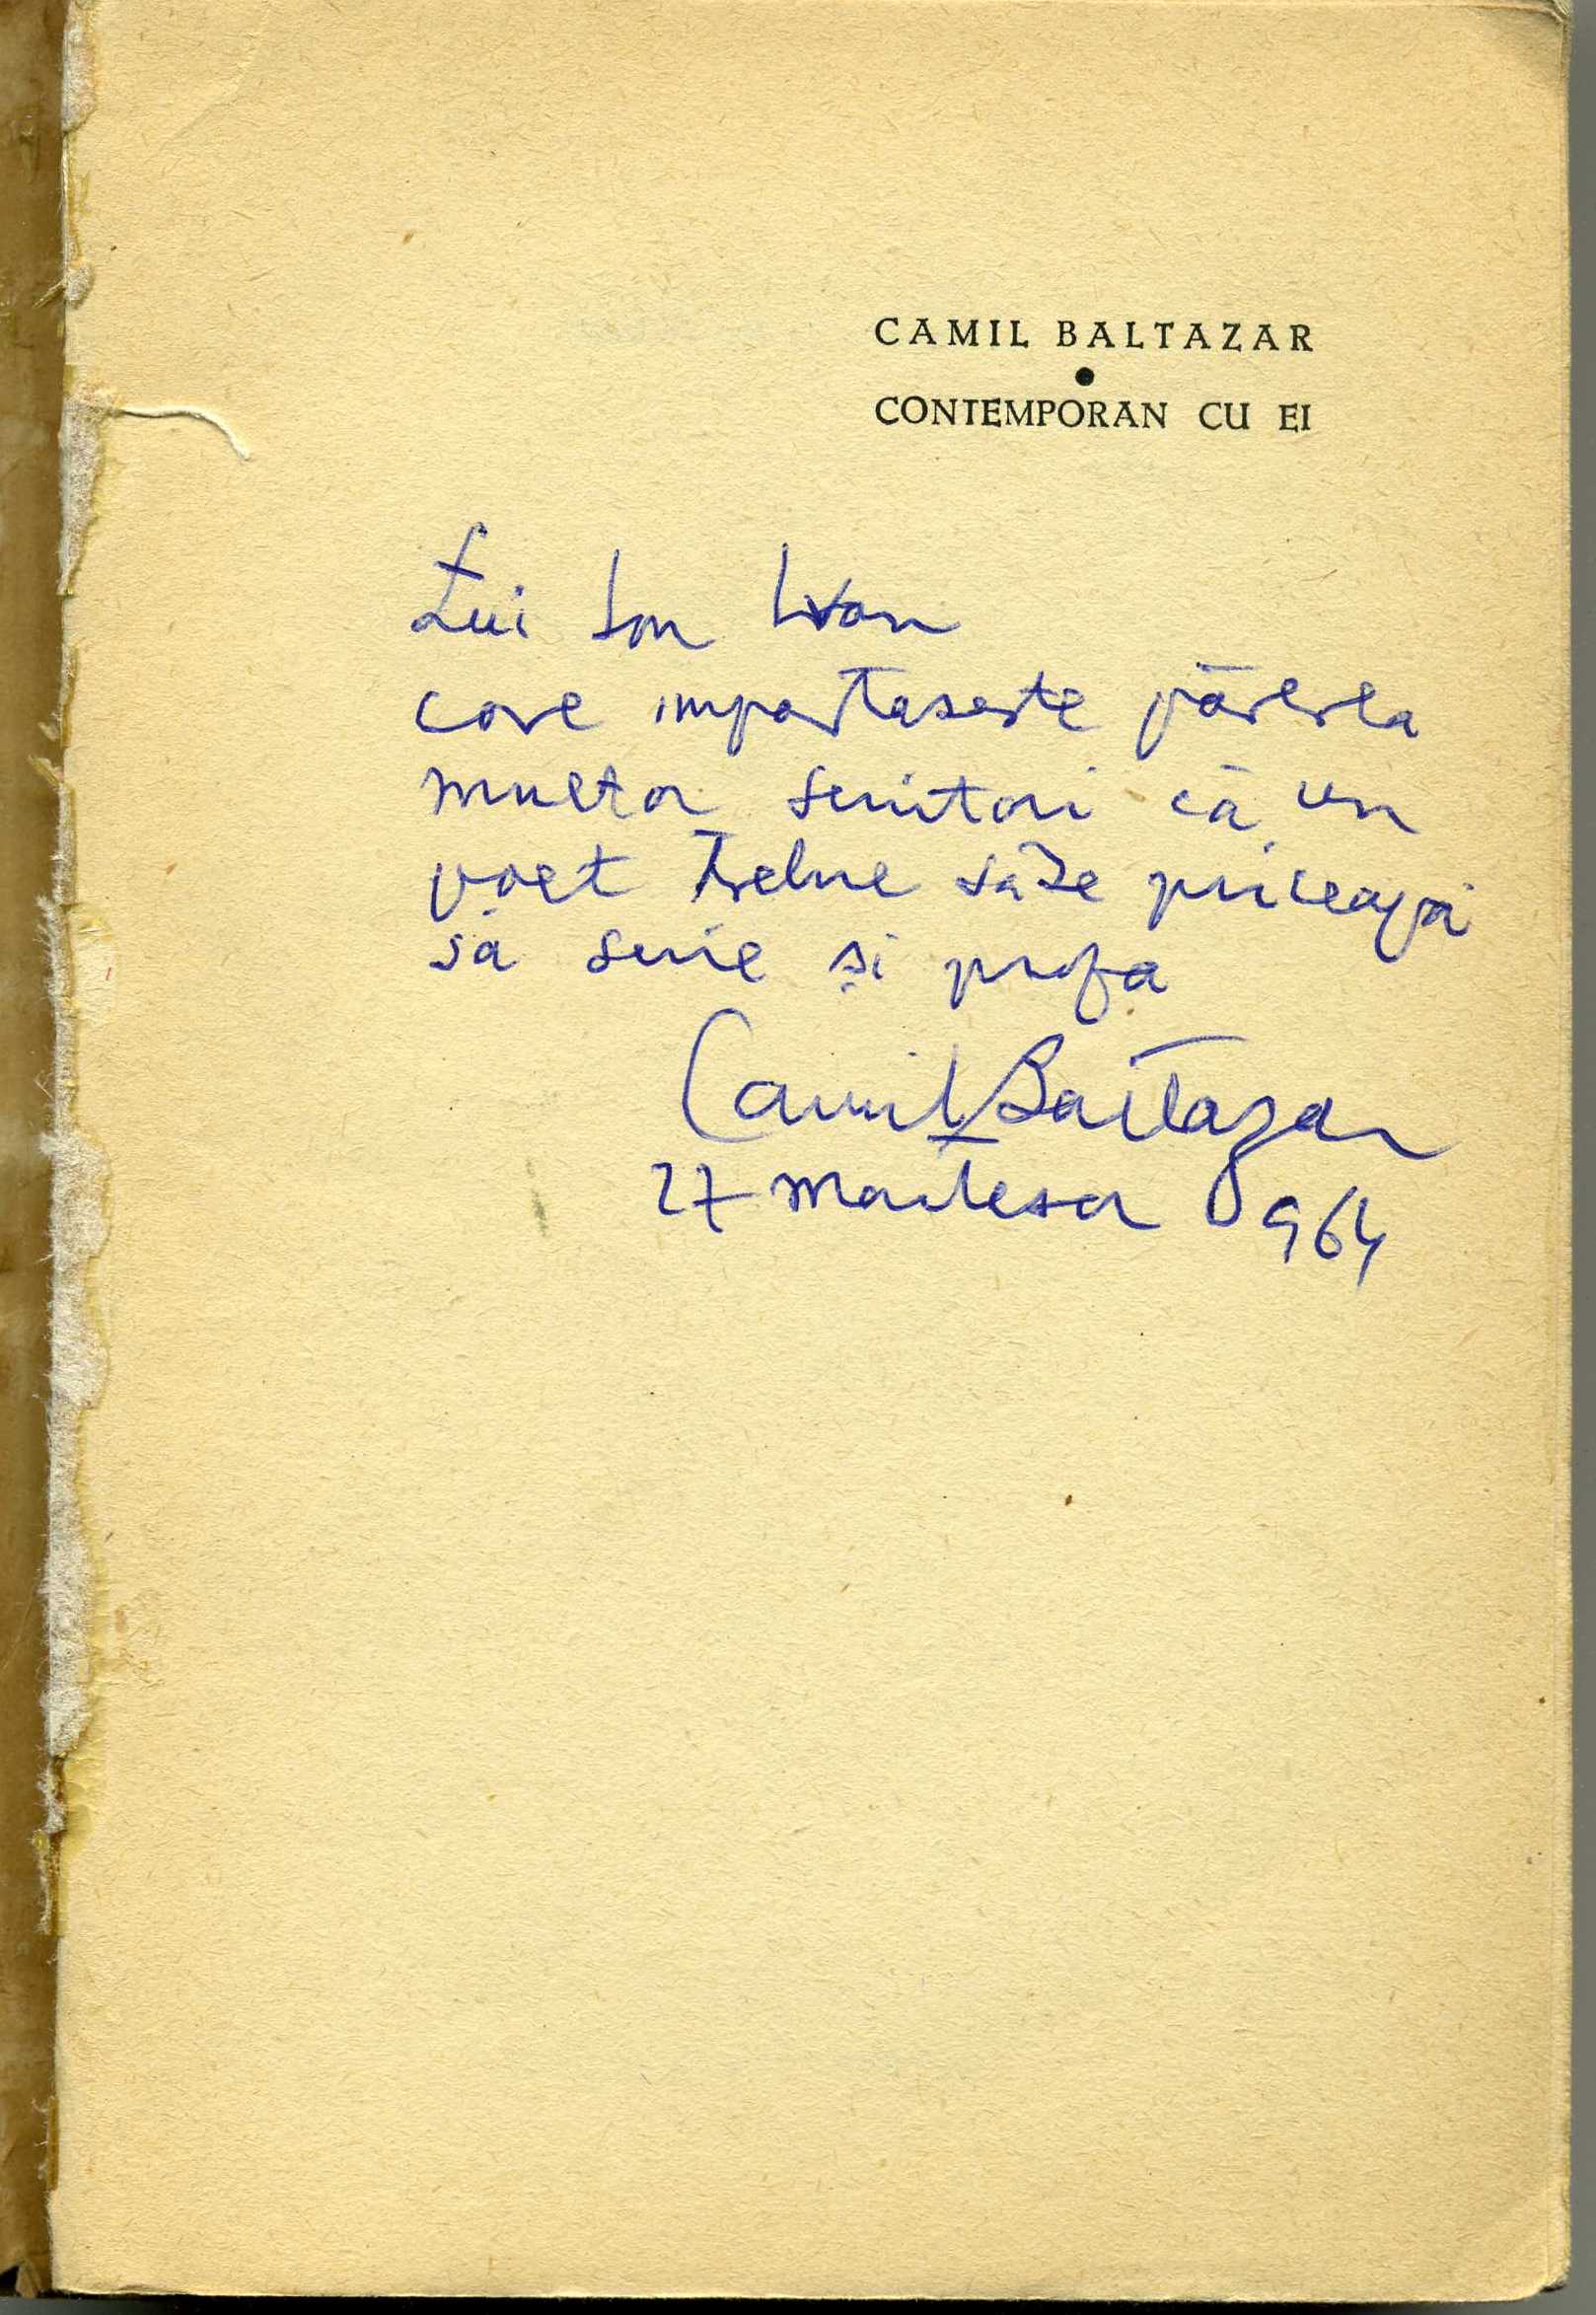 CAMIL BALTAZAR
CONTEMPORAN CU EI
Lui Ion Ivan
care impartaseste părerea
multor scriitori că un
poet trebue să se priceapă
să scrie și proza
Camil Baltazar
27 964